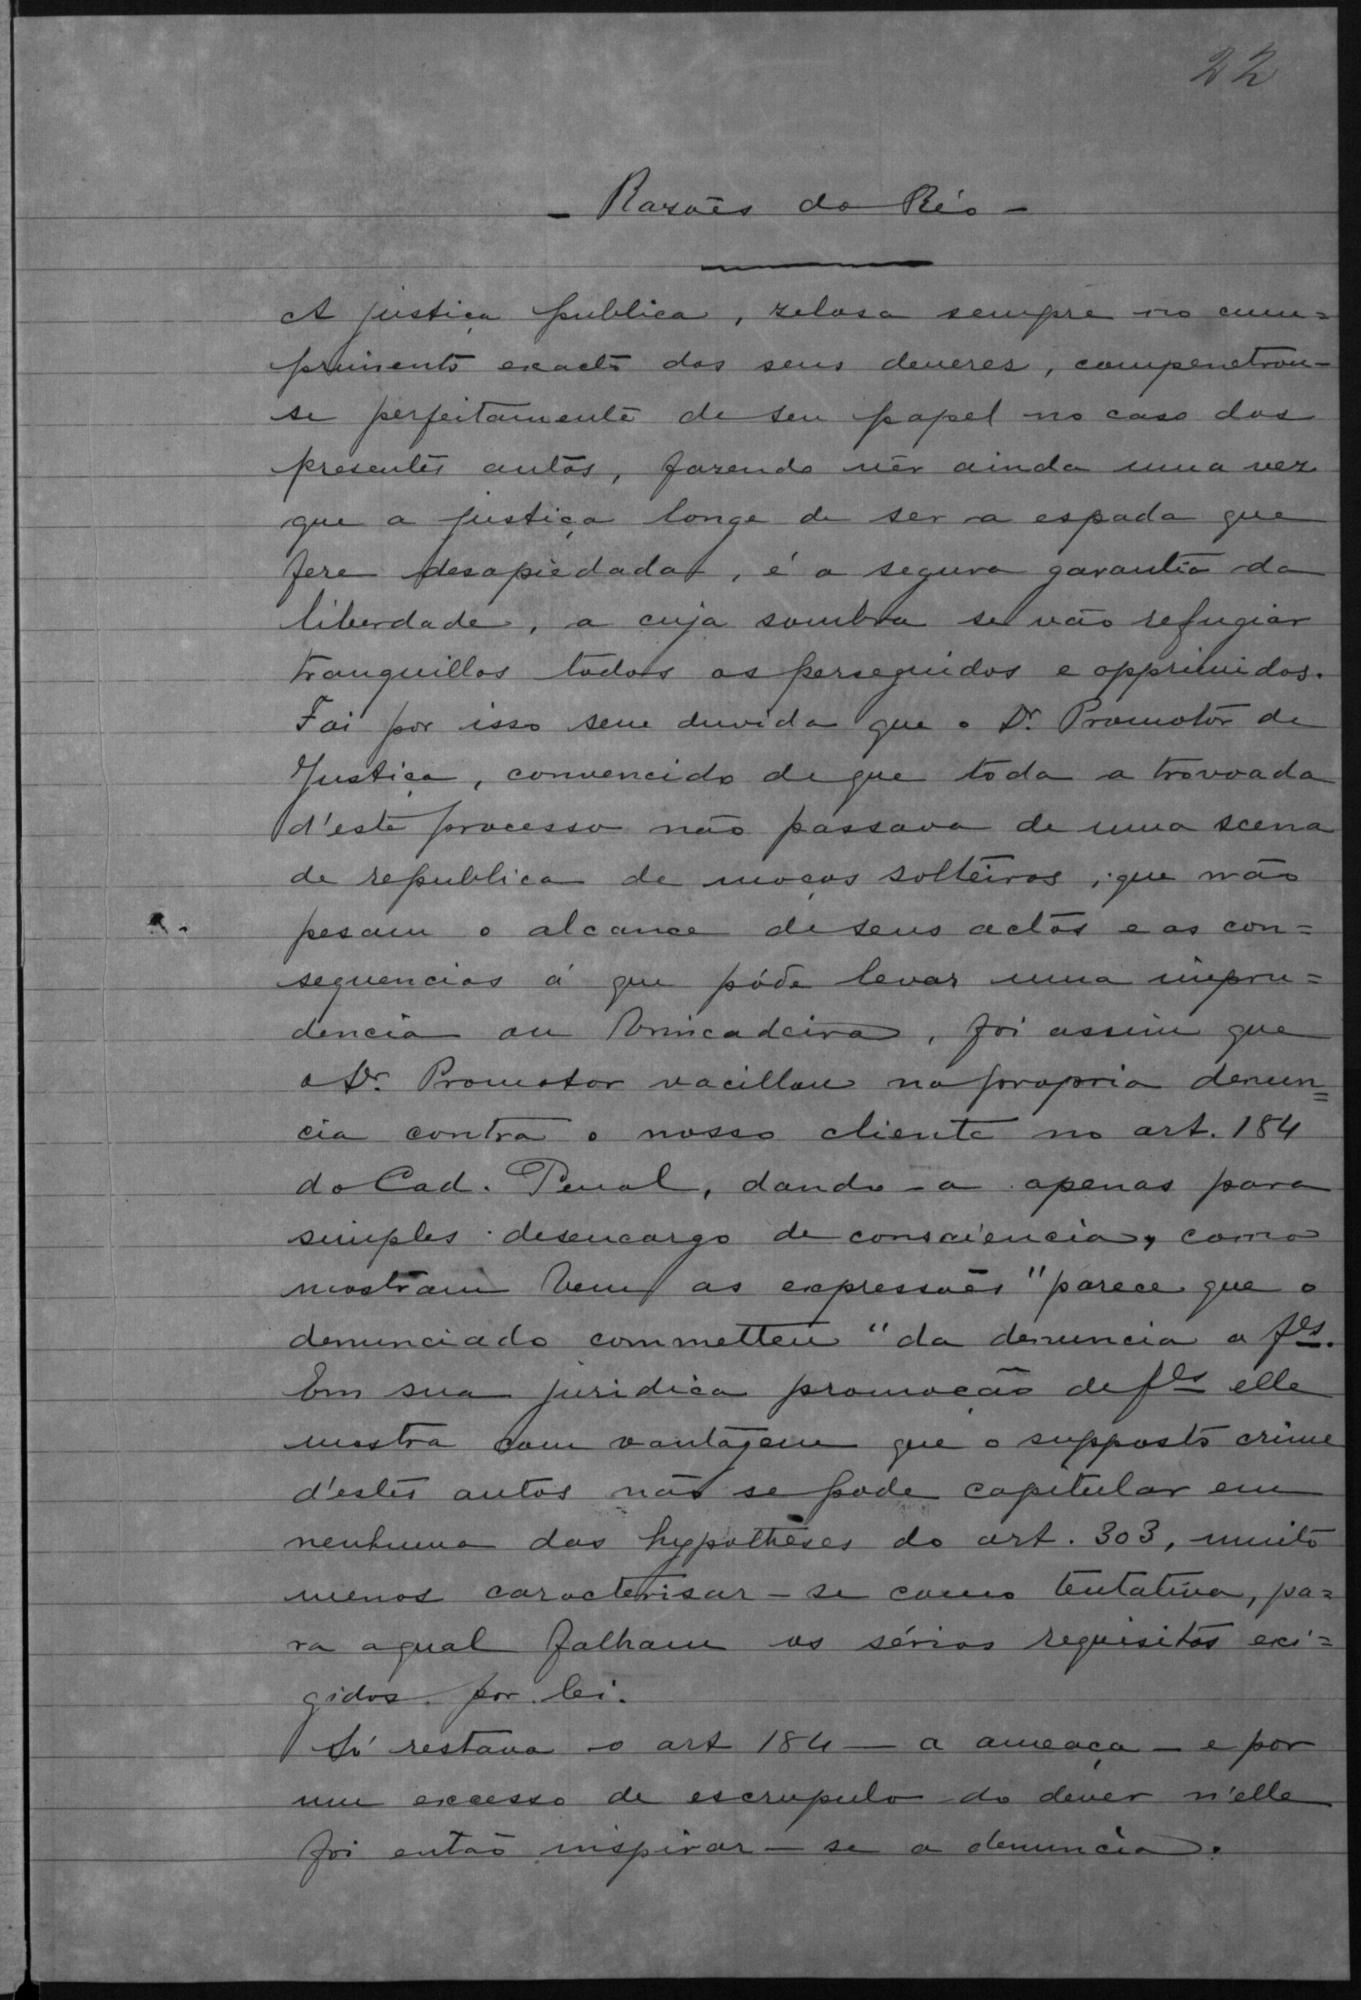 22
- Rasões do Réo -
A justiça publica, zelosa sempre no cum=
primento exacto dos seus deveres, compenetrou-
se perfeitamente de seu papel no caso dos
presentes autos, fazendo vêr ainda uma vez
que a justiça longe de ser a espada que
fere desapiedada, é a segura garantia da
liberdade, a cuja sombra se vão refugiar
tranquillos todos os perseguidos e opprimidos.
Foi por isso sem duvida que o Dr. Promotor de
Justiça, convencido de que toda a trovoada
d'este processo não passava de uma scena
de republica de moços solteiros, que não
pesam o alcance de seus actos e as con=
sequencias á que póde levar uma impru=
dencia ou brincadeira, foi assim que
o Dr. Promotor vacillou na propria denun=
cia contra o nosso cliente no art. 184
do Cod. Penal, dando-a apenas para
simples desencargo de consciencia, como
mostram bem as expressões "parece que o
denunciado commetteu" da denuncia a fls.
Em sua juridica promoção de fls elle
mostra com vantagem que o supposto crime
d'estes autos não se pode capitular em
nenhuma das hypothèses do art. 303, muito
menos caracterisar-se como tentativa, pa=
ra a qual falham os sérios requisitos exi=
gidos por lei.
Só restava o art 184 - a ameaça - e por
um excesso de escrupulo do dever n'elle
foi então inspirar-se a denuncia.